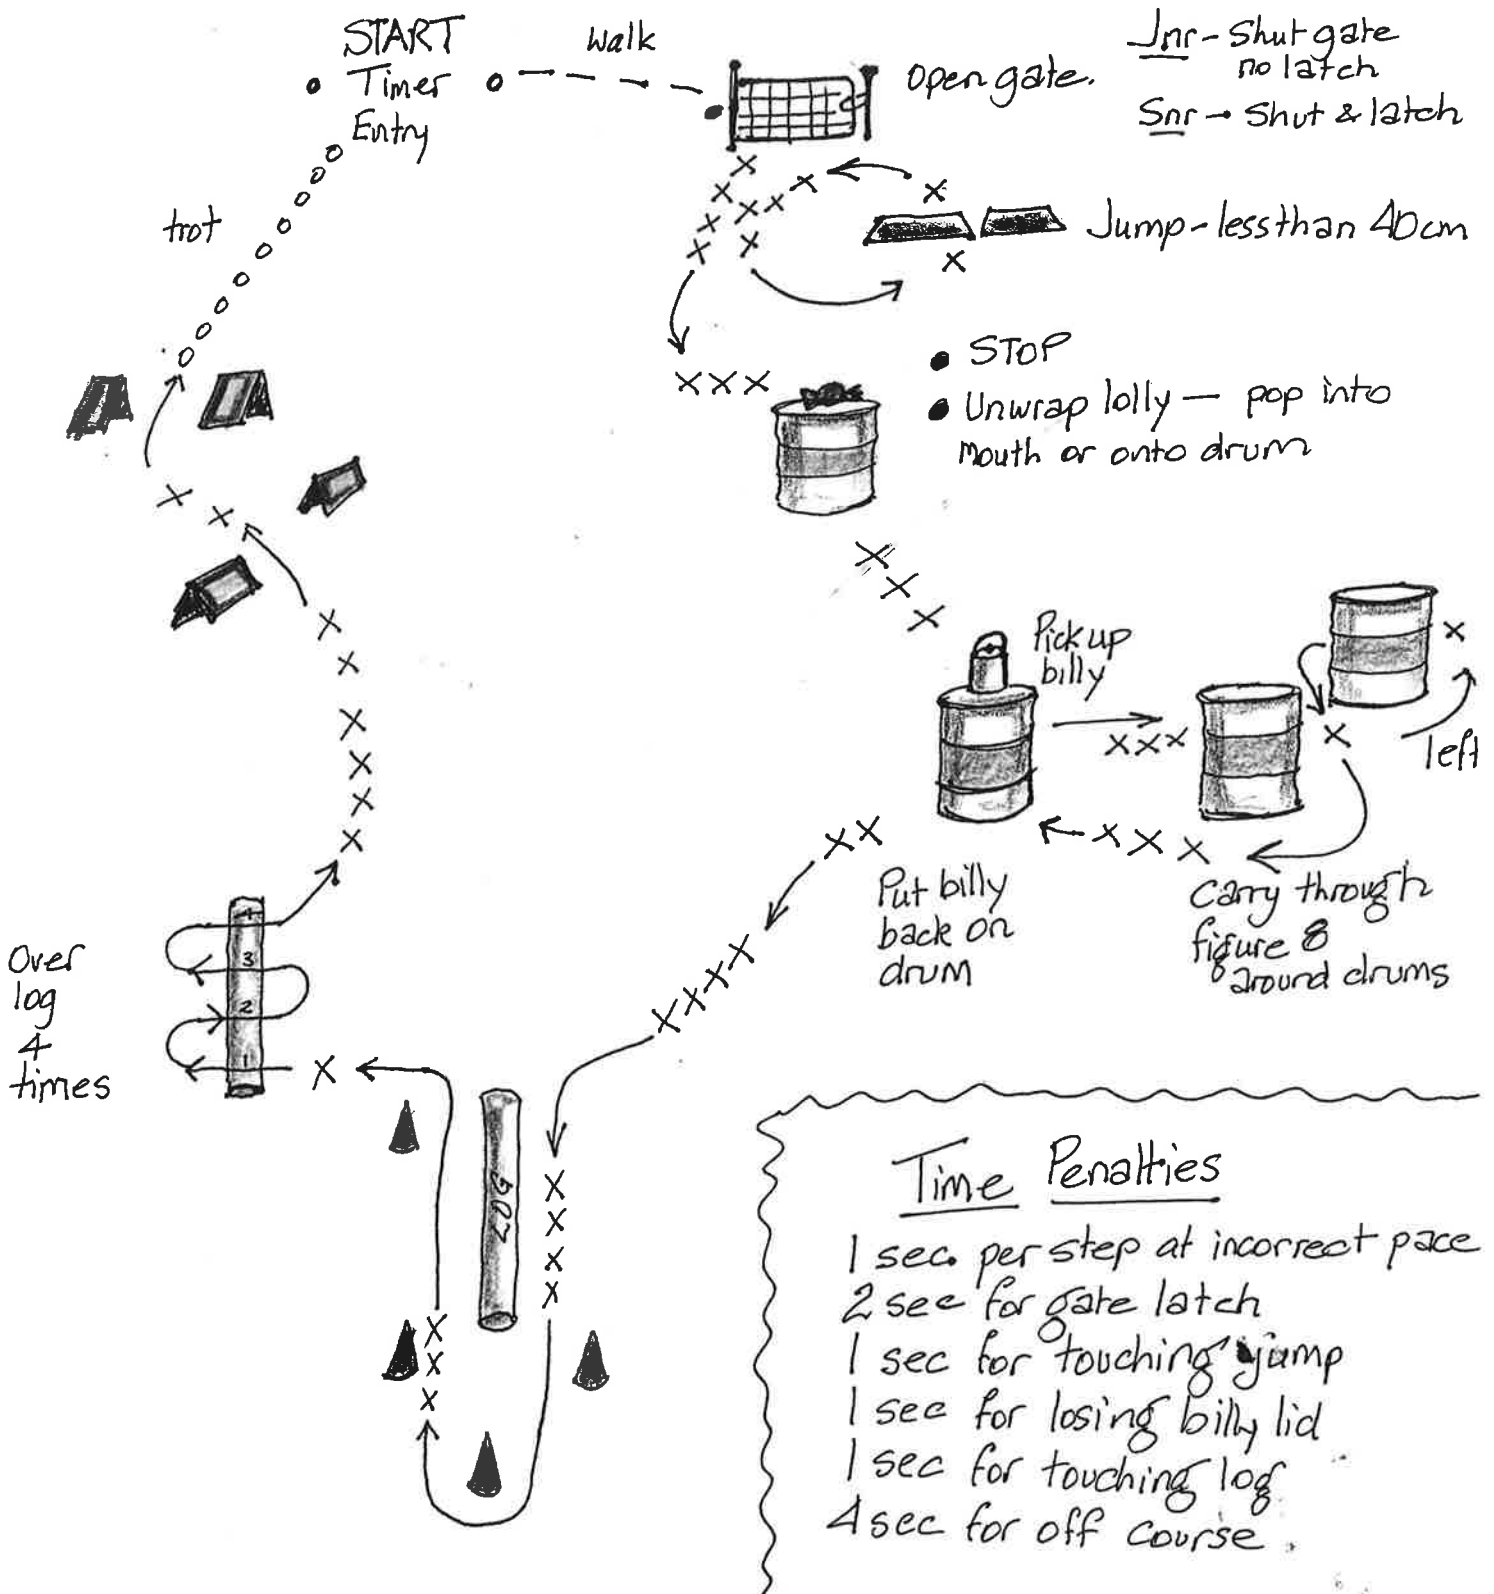 START
Timer
Entry
walk
open gate.
Jnr - Shut gate
no latch
Snr → Shut & latch
trot
Jump - less than 40cm
• STOP
• Unwrap lolly — pop into
mouth or onto drum
Pick up
billy
left
Put billy
back on
drum
Carry through
figure 8
around drums
Over
log
4
times
4
3
2
1
LOG
Time Penalties
1 sec. per step at incorrect pace
2 sec for gate latch
1 sec for touching jump
1 sec for losing billy lid
1 sec for touching log
4 sec for off course.